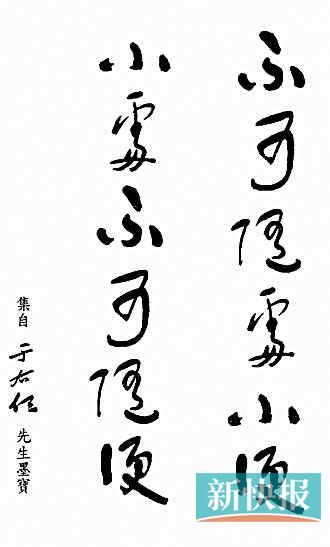 不可隨處小便
小處不可隨便
集自于右任先生墨寶
新快报